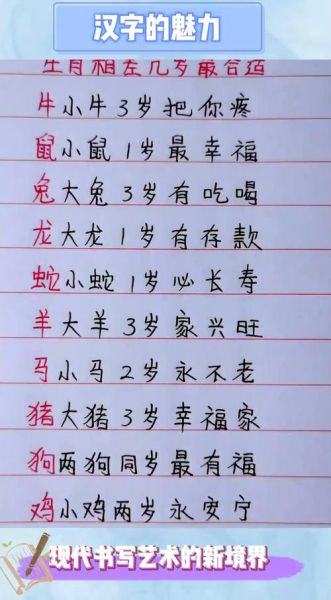 汉字的魅力
生肖相差几岁最合适
牛小牛3岁把你疼
鼠小鼠1岁最幸福
兔大兔3岁有吃喝
龙大龙1岁有存款
蛇小蛇1岁必长寿
羊大羊3岁家兴旺
马小马2岁永不老
猪大猪3岁幸福家
狗两狗同岁最有福
鸡小鸡两岁永安宁
现代书写艺术的新境界